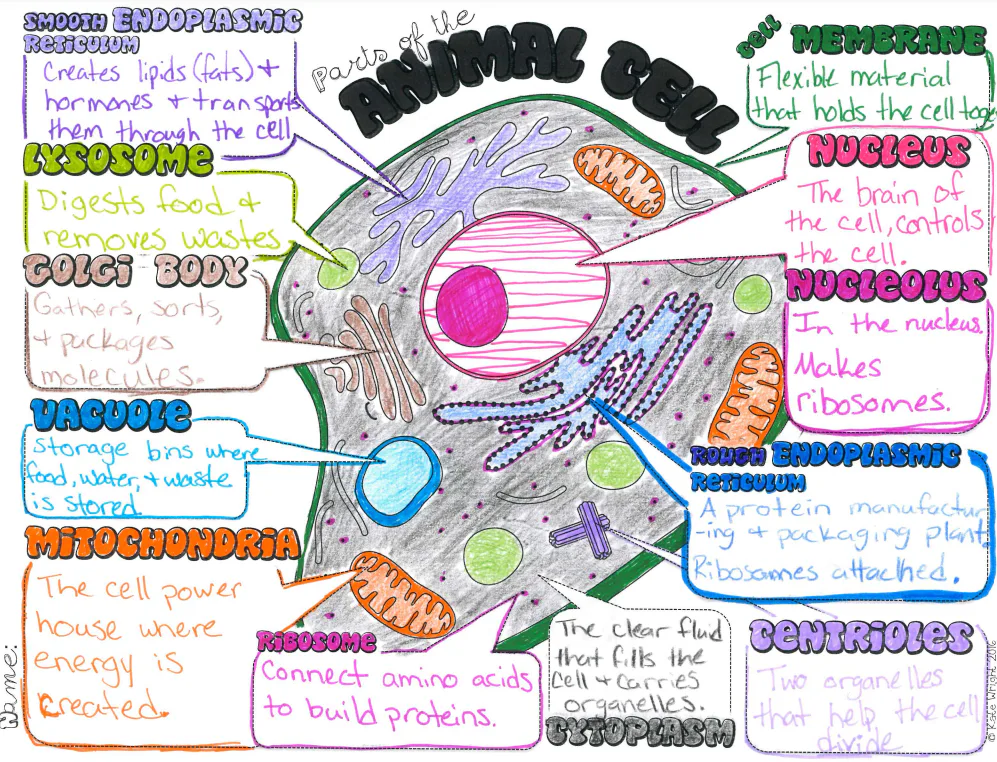 Parts of the
ANIMAL CELL
SMOOTH ENDOPLASMIC
RETICULUM
Creates lipids (fats) +
hormones + transports
them through the cell
LYSOSOME
Digests food +
removes wastes
GOLGI BODY
Gathers, sorts,
+ packages
molecules.
VACUOLE
Storage bins where
food, water, + waste
is stored
MITOCHONDRIA
The cell power
house where
energy is
created.
Name:
RIBOSOME
Connect amino acids
to build proteins.
The clear fluid
that fills the
cell + carries
organelles.
CYTOPLASM
Cell MEMBRANE
Flexible material
that holds the cell toge
NUCLEUS
The brain of
the cell, controls
the cell.
NUCLEOLUS
In the nucleus.
Makes
ribosomes.
ROUGH ENDOPLASMIC
RETICULUM
A protein manufactur
-ing + packaging plant.
Ribosomes attached.
CENTRIOLES
Two organelles
that help the cell
divide
© Kate Wright 2016